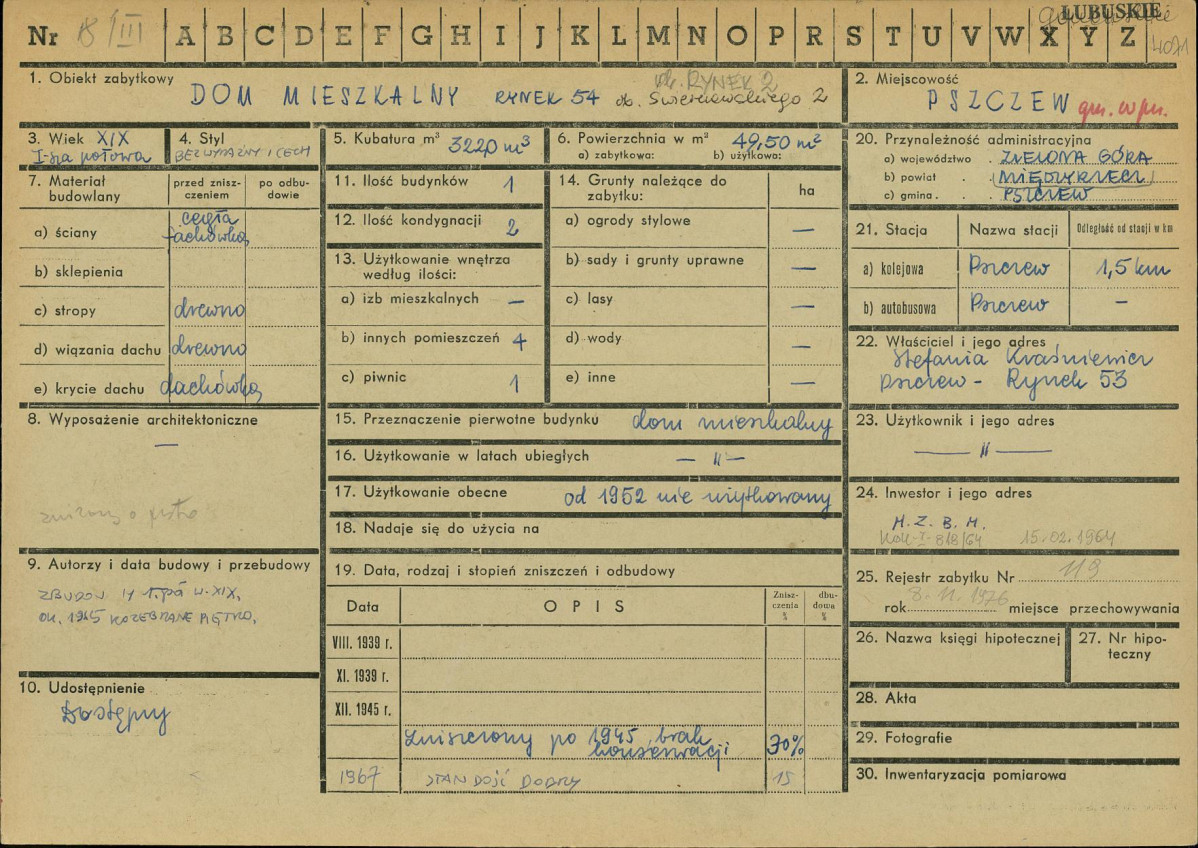 Nr 18/III A B C D E F G H I J K L M N O P R S T U V W X Y Z
LUBUSKIE
4071
1. Obiekt zabytkowy
ok. RYNEK 2
DOM MIESZKALNY RYNEK 54 ob. Świerczewskiego 2
2. Miejscowość
PSZCZEW gm. w pw.
3. Wiek XIX
I-sza połowa
4. Styl
BEZ WYRAŹNYCH CECH
5. Kubatura m³ 3220 m³
6. Powierzchnia w m² 49,50 m²
a) zabytkowa: b) użytkowa:
7. Materiał budowlany
przed zniszczeniem
po odbudowie
a) ściany cegła
dachówka
b) sklepienia
c) stropy drewno
d) wiązania dachu drewno
e) krycie dachu dachówka
8. Wyposażenie architektoniczne
—
9. Autorzy i data budowy i przebudowy
OK. 1965 ROZEBRANE PIĘTRO.
10. Udostępnienie
Dostępny
11. Ilość budynków 1
12. Ilość kondygnacji 2
13. Użytkowanie wnętrza
według ilości:
a) izb mieszkalnych —
b) innych pomieszczeń 4
c) piwnic 1
14. Grunty należące do
zabytku:
ha
a) ogrody stylowe —
b) sady i grunty uprawne —
c) lasy —
d) wody —
e) inne —
15. Przeznaczenie pierwotne budynku dom mieszkalny
16. Użytkowanie w latach ubiegłych — " —
17. Użytkowanie obecne od 1952 nie użytkowany
18. Nadaje się do użycia na
19. Data, rodzaj i stopień zniszczeń i odbudowy
Data
OPIS
Zniszczenia %
dbudowa %
VIII. 1939 r.
XI. 1939 r.
XII. 1945 r.
zniszczony po 1945, brak
konserwacji 70%
1967 STAN DOŚĆ DOBRY 15
20. Przynależność administracyjna
a) województwo . ZIELONA GÓRA
b) powiat . (MIĘDZYRZECZ)
c) gmina . . PSZCZEW
21. Stacja
Nazwa stacji
Odległość od stacji w km
a) kolejowa Pszczew 1,5 km
b) autobusowa Pszczew —
22. Właściciel i jego adres
Stefania Kraśniewicz
Pszczew - Rynek 53
23. Użytkownik i jego adres
— " —
24. Inwestor i jego adres
M. Z. B. M.
KoK-I-818/64 15.02.1964
25. Rejestr zabytku Nr 119
8.11.1976
rok miejsce przechowywania
26. Nazwa księgi hipotecznej
27. Nr hipoteczny
28. Akta
29. Fotografie
30. Inwentaryzacja pomiarowa